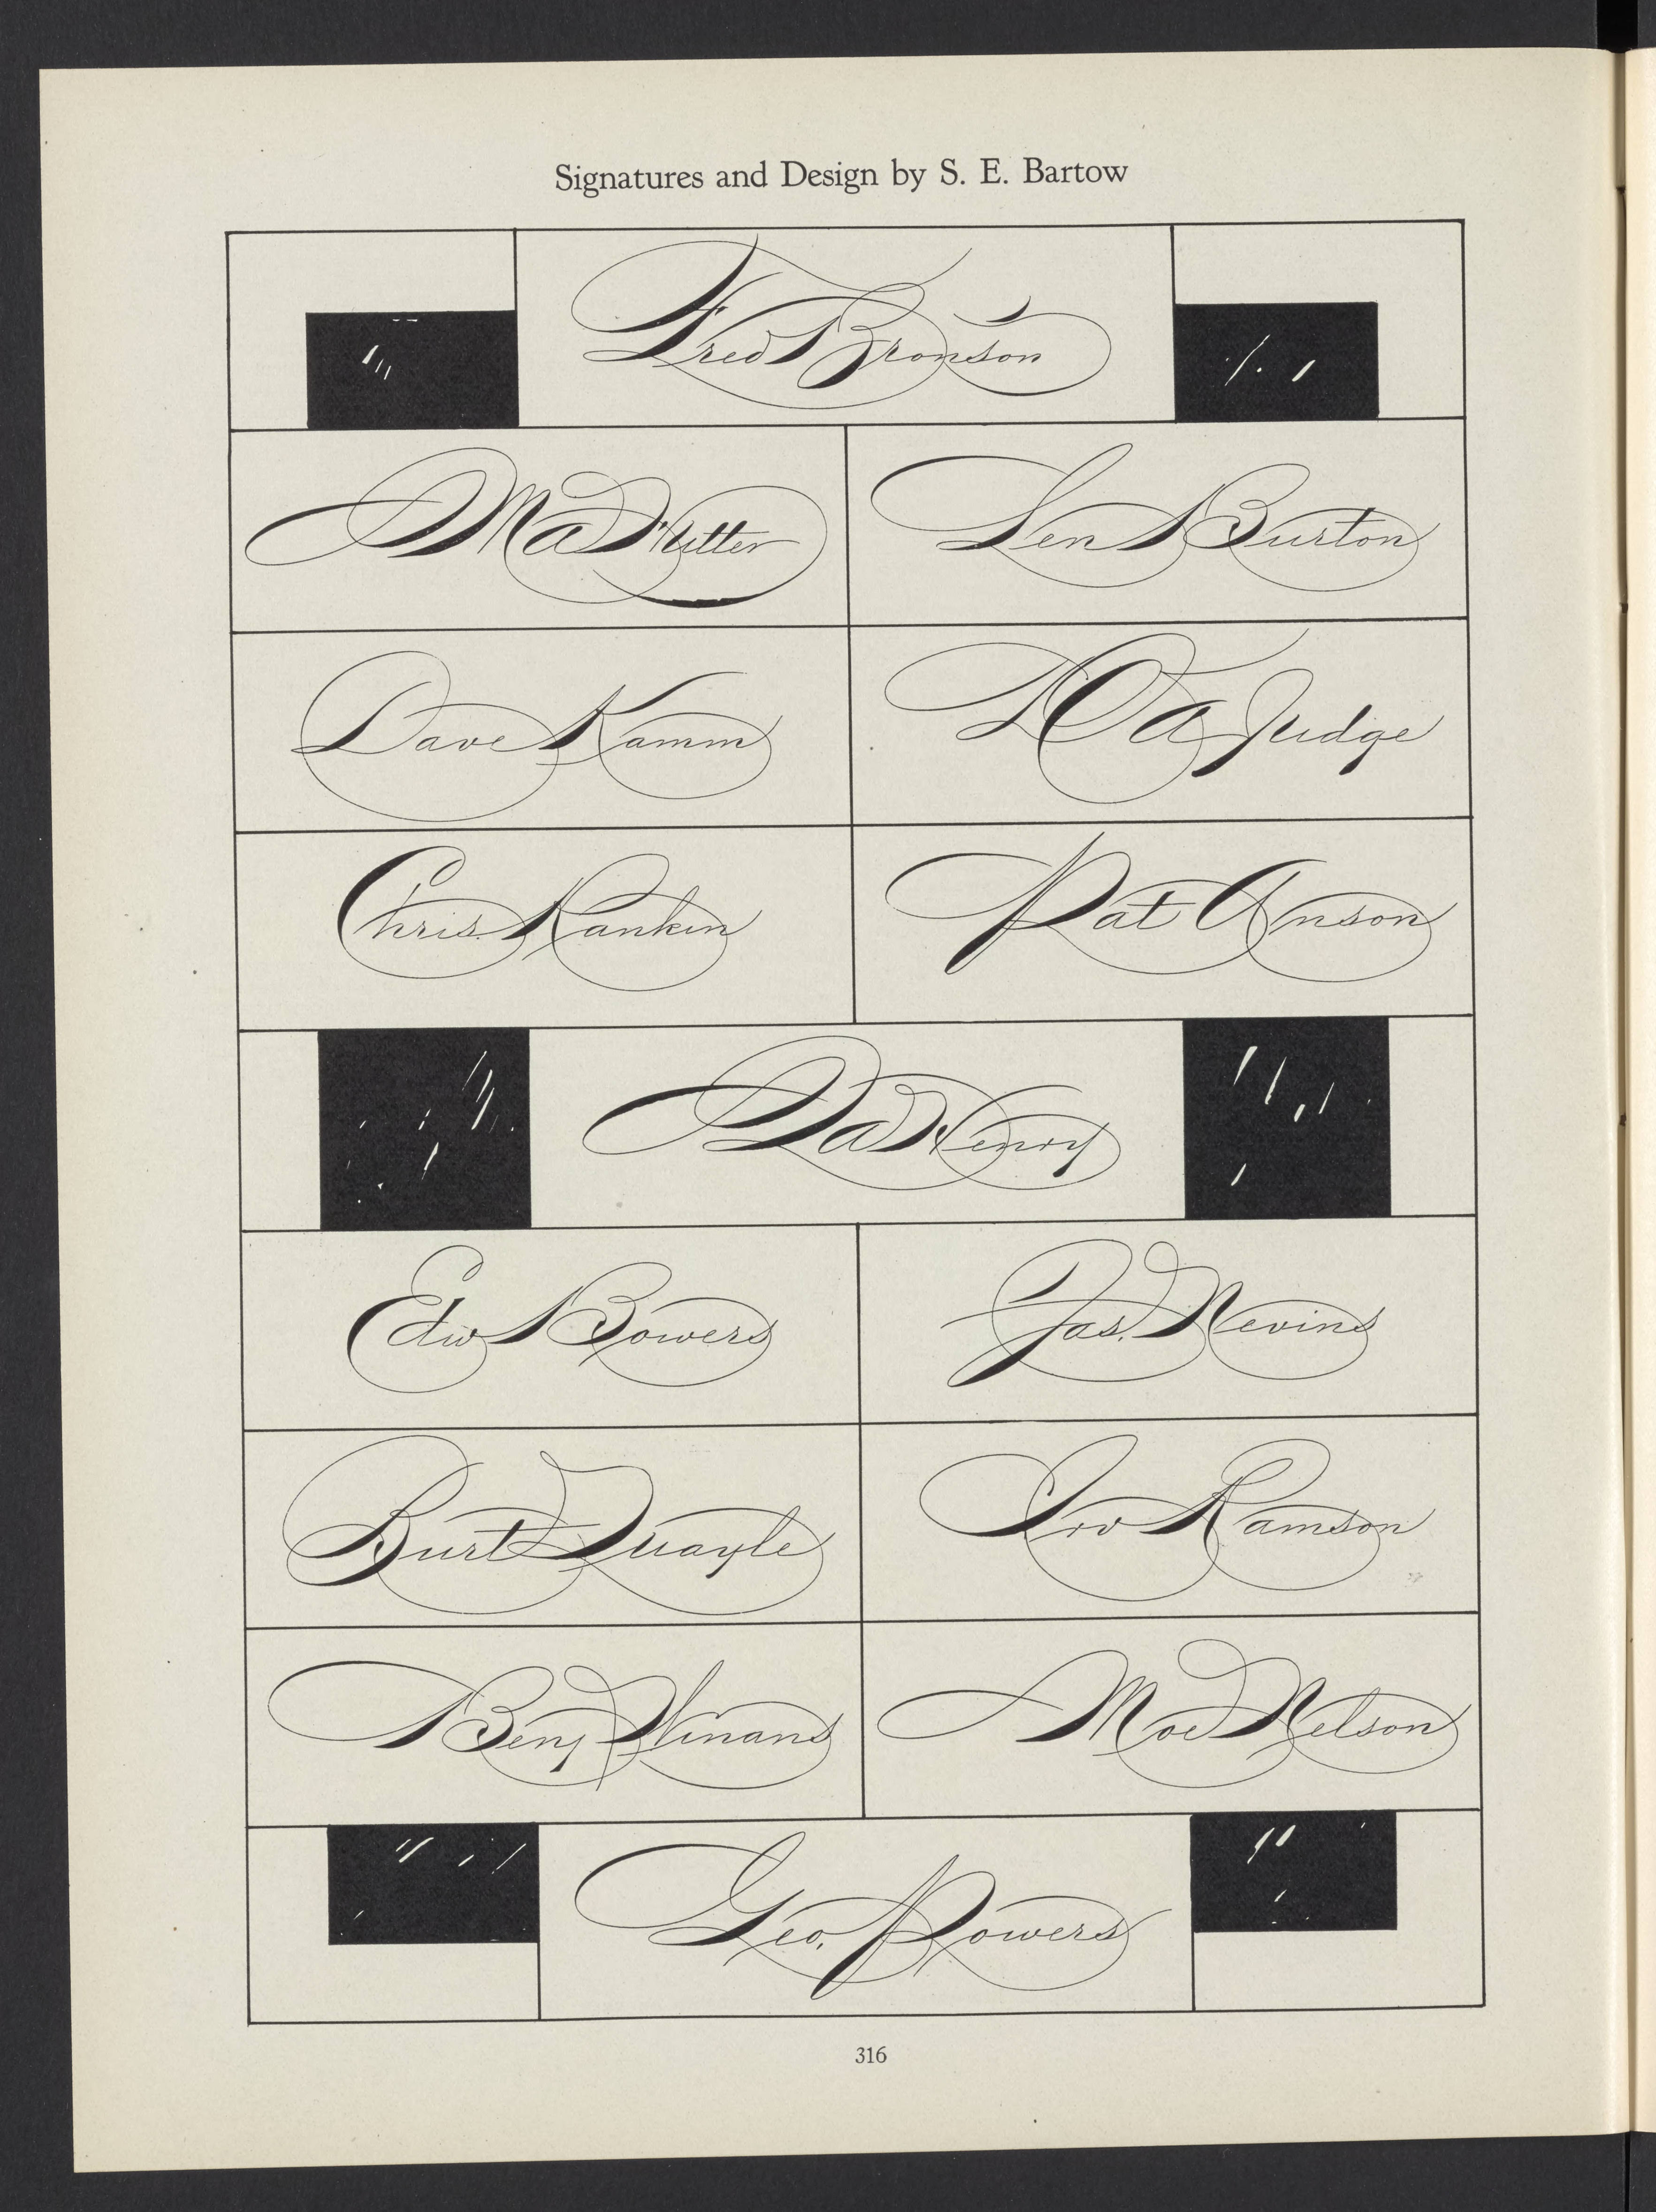 Signatures and Design by S. E. Bartow
Fred Bronson
Len Burton
Dave Kamm
Judge
Chris. Rankin
Pat Anson
Henry
Edw Bowers
Jas. Nevins
Burt Quayle
Irv Ramson
Benj Winans
Moe Nelson
Geo. Powers
316